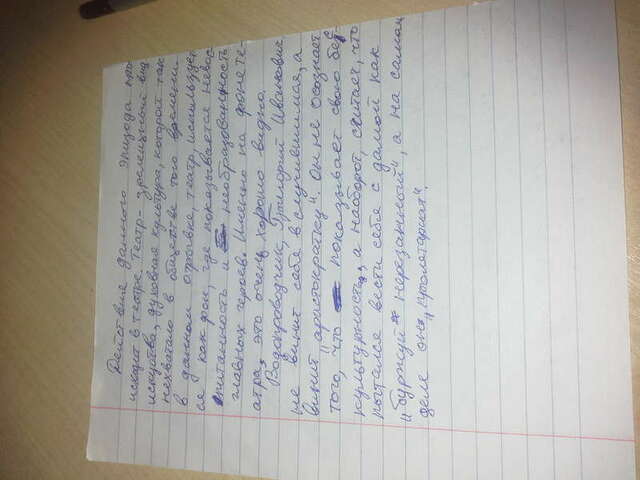 Действия данного эпизода про
исходит в театре. Театр - зрелищный вид
искуства, духовная культура, которой так
нехватало в обществе того времени
в данном отрывке, театр, использует
ся как фон, где показывается невос
питанность и необразованность
главных героев. Именно на фоне те-
атра, это очень хорошо видно.
Водопроводчик, Григорий Иванович
не винит себя в случившимся, а
винит "аристократку". Он не осознает
того, что показывает свою бес-
культурность, а наоборот, считает, что
пытался вести себя с дамой как
"буржуй нерезанный", а на самом
деле он "пролетариат".